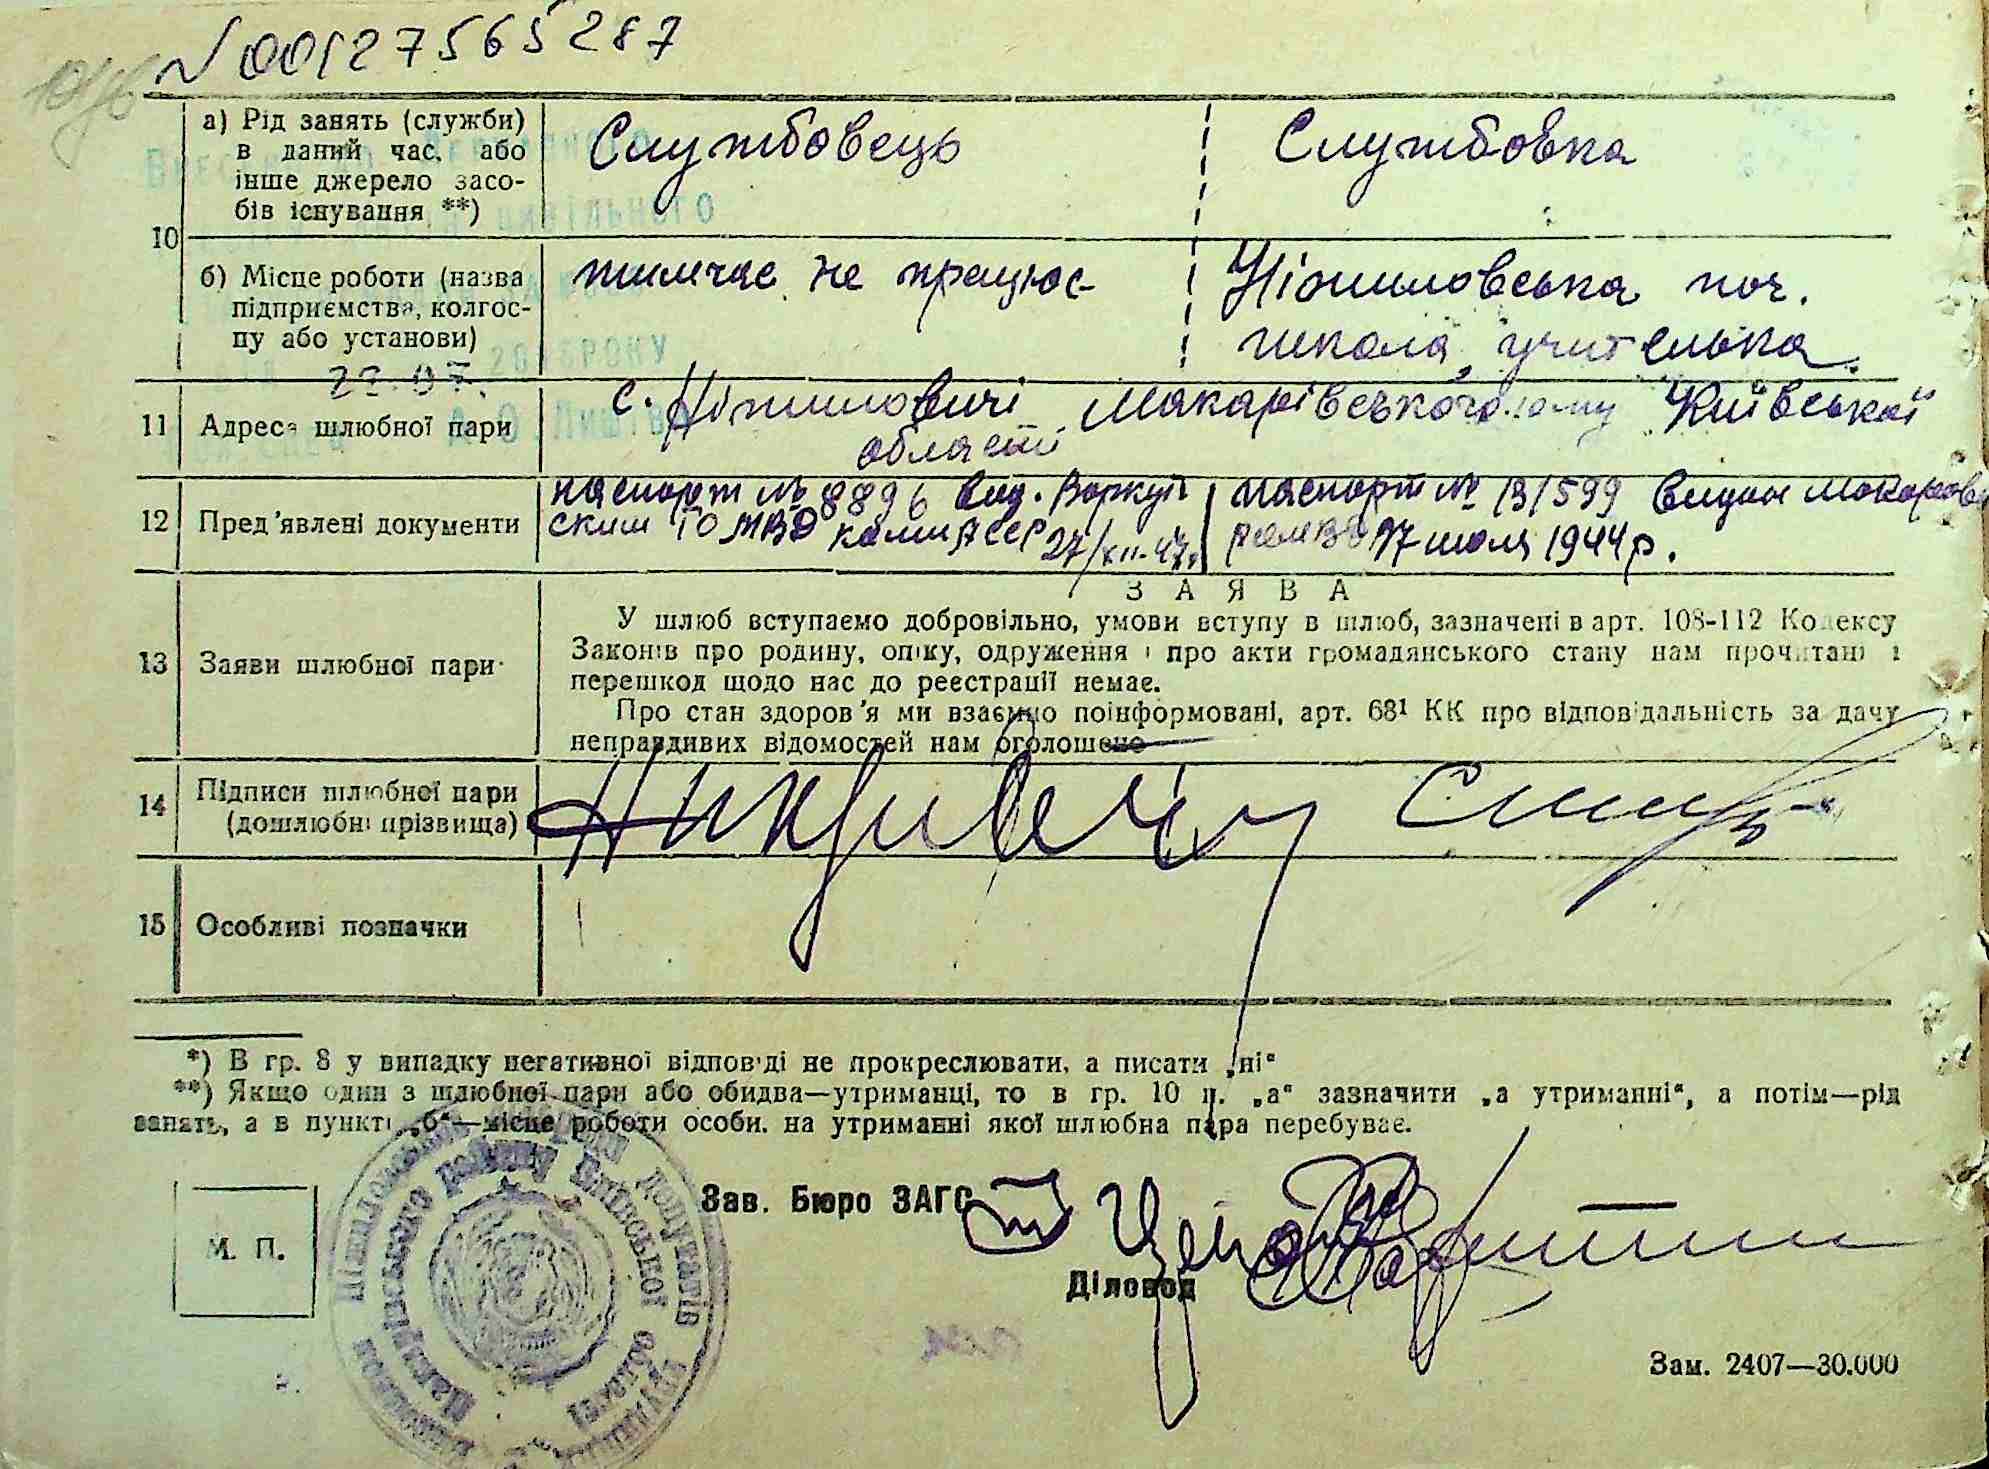 N 00127565287
10
а) Рід занять (служби)
в даний час, або
інше джерело засо-
бів існування **)
Службовець
Службовка
б) Місце роботи (назва
підприємства, колгос-
пу або установи)
тимчас не працює
Ніжиловська поч.
школа, учителька.
11
Адреса шлюбної пари
с. Ніжиловичі Макарівського Київської
області
12
Пред'явлені документи
паспорт № 8896 вид. Воркут
ским ГО МВД Коми АССР 27/XII-47.
паспорт № 131599 видан Макаров
17 июля 1944 р.
13
Заяви шлюбної пари
ЗАЯВА
У шлюб вступаємо добровільно, умови вступу в шлюб, зазначені в арт. 108-112 Кодексу
Законів про родину, опіку, одруження і про акти громадянського стану нам прочитані і
перешкод щодо нас до реєстрації немає.
Про стан здоров'я ми взаємно поінформовані, арт. 68¹ КК про відповідальність за дачу
неправдивих відомостей нам оголошено
14
Підписи шлюбної пари
(дошлюбні прізвища)
15
Особливі позначки
*) В гр. 8 у випадку негативної відповіді не прокреслювати, а писати „ні"
**) Якщо один з шлюбної пари або обидва—утриманці, то в гр. 10 п. „а" зазначити „а утриманні", а потім—рід
занять, а в пункті „б"—місце роботи особи, на утриманні якої шлюбна пара перебуває.
М. П.
Зав. Бюро ЗАГС
Діловод
Макарівського району Київської області
Зам. 2407—30.000